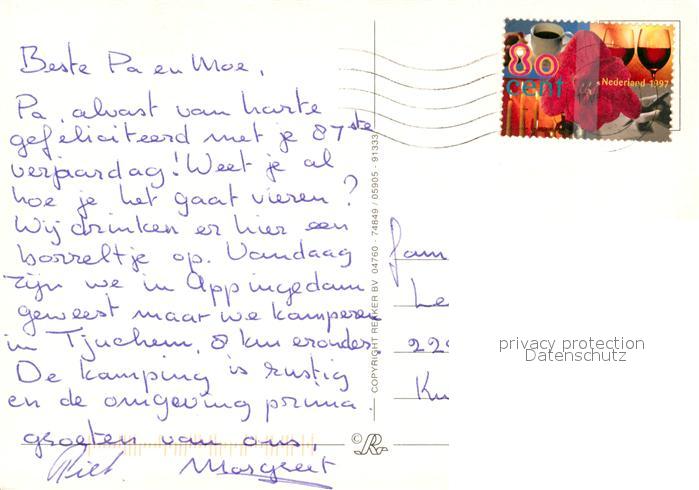 Beste Pa en Moe,
Pa, alvast van harte
gefeliciteerd met je 87ste
verjaardag! Weet je al
hoe je het gaat vieren?
Wij drinken er hier een
borreltje op. Vandaag
zijn we in Appingedam
geweest maar we kamperen
in Tjuchem, 8 km eronder.
De kamping is rustig
en de omgeving prima.
groeten van ons,
Piet Margreet
COPYRIGHT REKKER BV 04760 - 74849 / 05905 - 91333
©R
80
cent
Nederland 1997
Fam
Le
22
Ku
privacy protection
Datenschutz